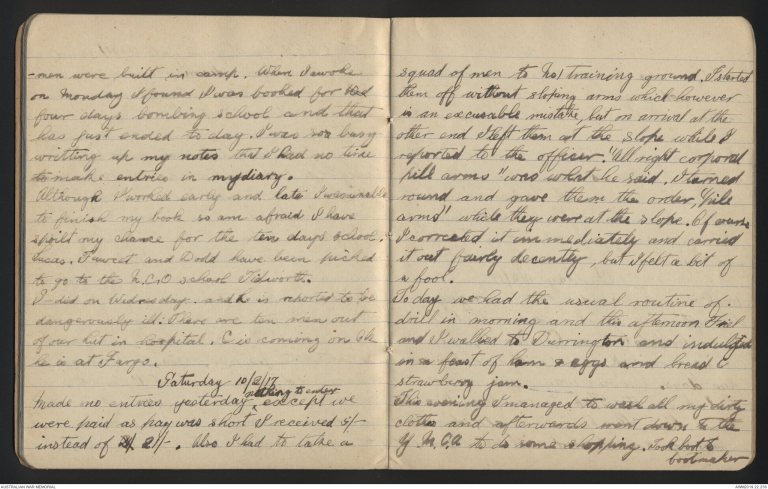 -men were built in camp. When I awoke
on Monday I found I was booked for
four days bombing school and that
has just ended to day. I was so busy
writting up my notes that I had no time
to make entries in my diary.
Although I worked early and late I was unable
to finish my book so am afraid I have
spoilt my chance for the ten days school.
Lucas, Fawcet and Dodd have been picked
to go to the N.C.O school Tidworth.
I did on Wednesday. and is reported to be
dangerously ill. There are ten men out
of our hut in hospital. C is coming on Ok
he is at Fargo.
Saturday 10/2/17
nothing to enter
Made no entries yesterday except we
were paid as pay was short I received 5/-
instead of 2/-. Also I had to take a
squad of men to No 1 training ground. I started
them off without sloping arms which however
is an excusable mistake, but on arrival at the
other end I left them at the slope while I
reported to the officer. "All right corporal
pile arms" was what he said. I turned
round and gave them the order, "pile
arms" while they were at the slope. Of course
I corrected it immediately and carried
it out fairly decently, but I felt a bit of
a fool.
To day we had the usual routine of
drill in morning and this afternoon
and I walked to Durrington and indulged
in a feast of ham & eggs and bread &
strawberry jam.
This evening I managed to wash all my dirty
clothes and afterwards went down to the
Y M C A to do some shopping. Took boots to
bootmaker
AUSTRALIAN WAR MEMORIAL